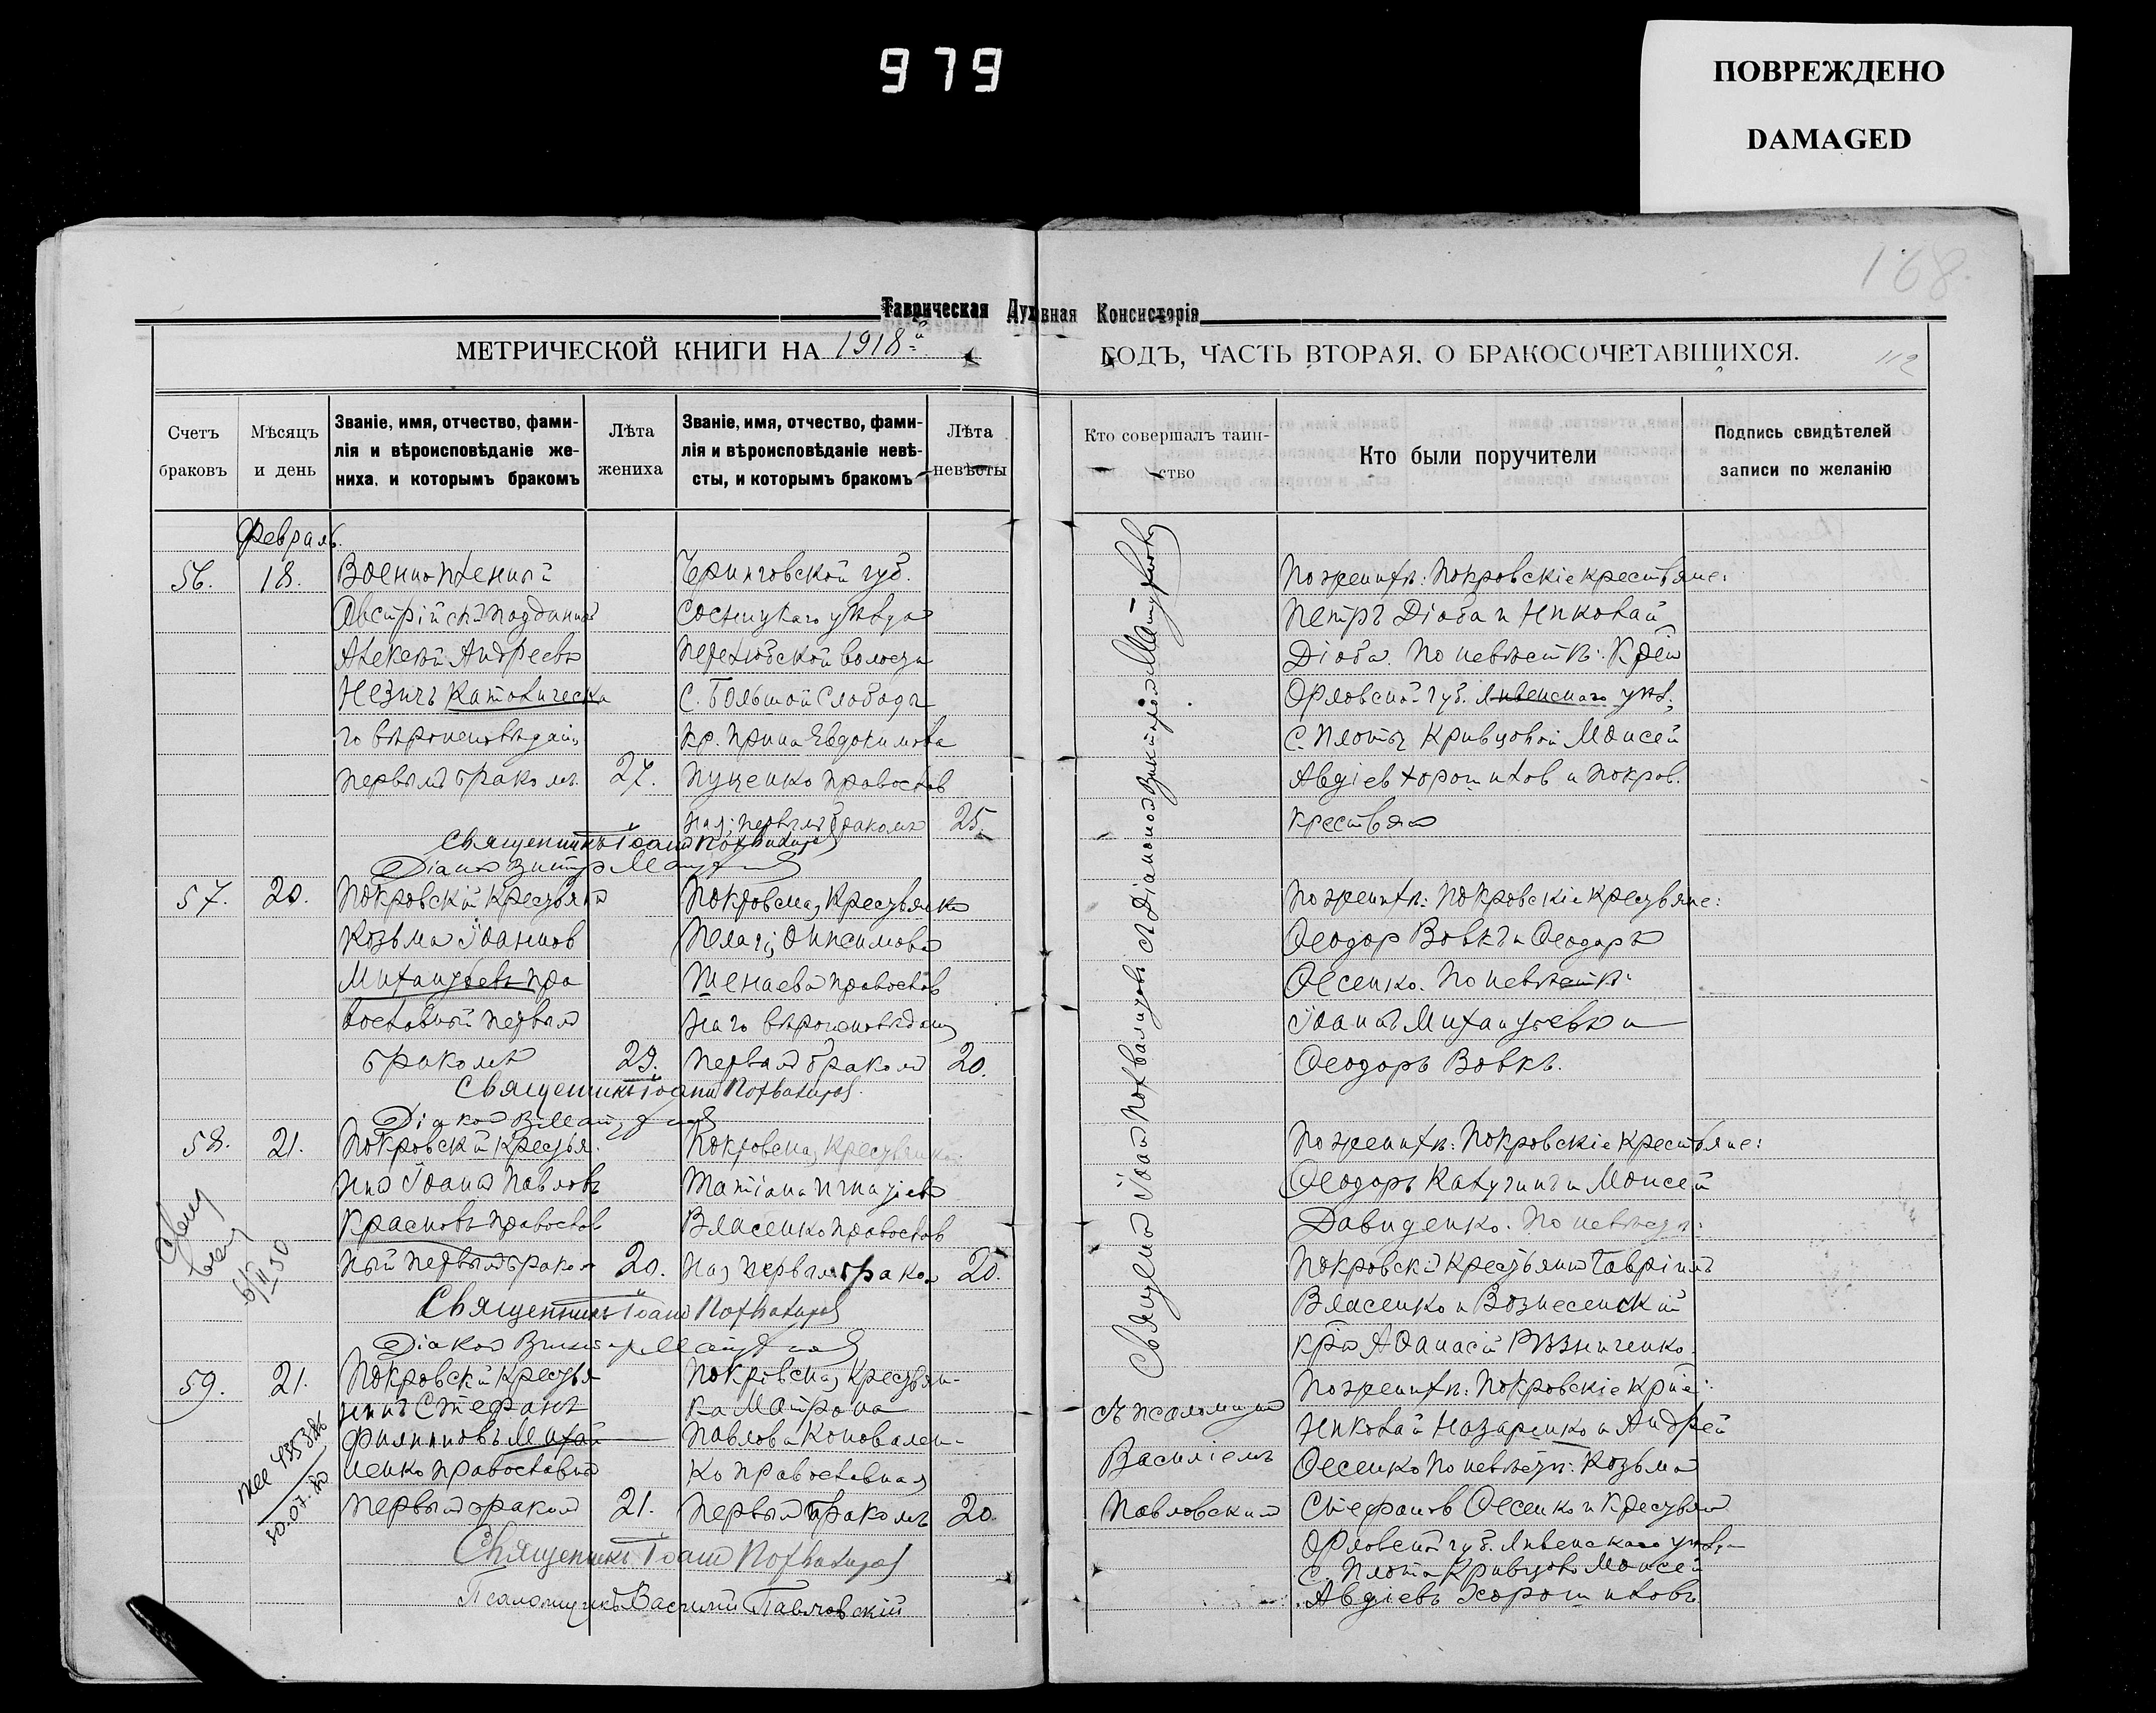 979
ПОВРЕЖДЕНО
DAMAGED
168.
Таврическая Духовная Консисторія
МЕТРИЧЕСКОЙ КНИГИ НА 1918й ГОДЪ, ЧАСТЬ ВТОРАЯ, О БРАКОСОЧЕТАВШИХСЯ.
112
Счетъ браковъ
Мѣсяцъ и день
Званіе, имя, отчество, фами-
лія и вѣроисповѣданіе же-
ниха, и которымъ бракомъ
Лѣта жениха
Званіе, имя, отчество, фами-
лія и вѣроисповѣданіе невѣ-
сты, и которымъ бракомъ
Лѣта невѣсты
Кто совершалъ таин-
ство
Кто были поручители
Подпись свидѣтелей
записи по желанію
Февраль.
56.
18.
Военноплѣнный
Австрійскій подданный
Алексѣй Андреевъ
Незичъ Католическа
го вѣроисповѣданія
первымъ бракомъ.
27.
Черниговской губ.
Сосницкаго уѣзда
С. Большой Слободы
кр. Ирина Евдокимова
Пуценко православ
ная; первымъ бракомъ
25.
По женихѣ: Покровскіе крестьяне:
Петръ Дзюба и Николай
Дзюба. По невѣстѣ: Кр-нъ
Орловской губ. Ливенскаго уѣз.
с. Плоты Кривцовой Моисей
Авдіев Хорошилов и Покров.
крестьян
Священникъ Іоаннъ Похвалидовъ
57.
20.
Покровскій крестьянин
Козьма Іоаннов
Михайловъ пра
вославный первым
бракомъ
29.
Покровская крестьянка
Пелагія Онисимова
Шенаева православ
наго вѣроисповѣданія
первым бракомъ
20.
По женихѣ: Покровскіе крестьяне:
Ѳеодор Вовкъ и Ѳеодоръ
Ѳесенко. По невѣстѣ:
Ѳеодоръ Вовкъ.
Священникъ Іоаннъ Похвалидовъ
58.
21.
Покровскій крестья
нин Іоанн Павловъ
Красновъ православ
ный первымъ бракомъ
20.
Покровская крестьянка
Татіана Игнатіева
Власенко православ
ная первымъ бракомъ
20.
По женихѣ: Покровскіе крестьяне:
Ѳеодоръ Калугинъ и Моисей
Давиденко. По невѣстѣ:
Покровскій крестьянинъ Гавріилъ
Власенко и Вознесенскій
кр-нъ Аѳанасій Рѣзниченко.
Священникъ Іоаннъ Похвалидовъ
59.
21.
Покровскій крестья
нинъ Стефанъ
Филиповъ Михай
ленко православный
первымъ бракомъ
21.
Покровская крестьян-
ка Матрона
Павлова Коновален-
ко православная
первымъ бракомъ
20.
съ псаломщик
Василіемъ
Павловскимъ
По женихѣ: Покровскіе кр-не:
Николай Назаренко и Андрей
Ѳесенко По невѣстѣ: Козьма
Стефанов Ѳесенко и крестьян
Орловской губ. Ливенскаго уѣзда
с. Плота Кривцово Моисей
Авдіевъ Хорошиловъ
Священникъ Іоаннъ Похвалидовъ
Псаломщикъ Василий Павловскій